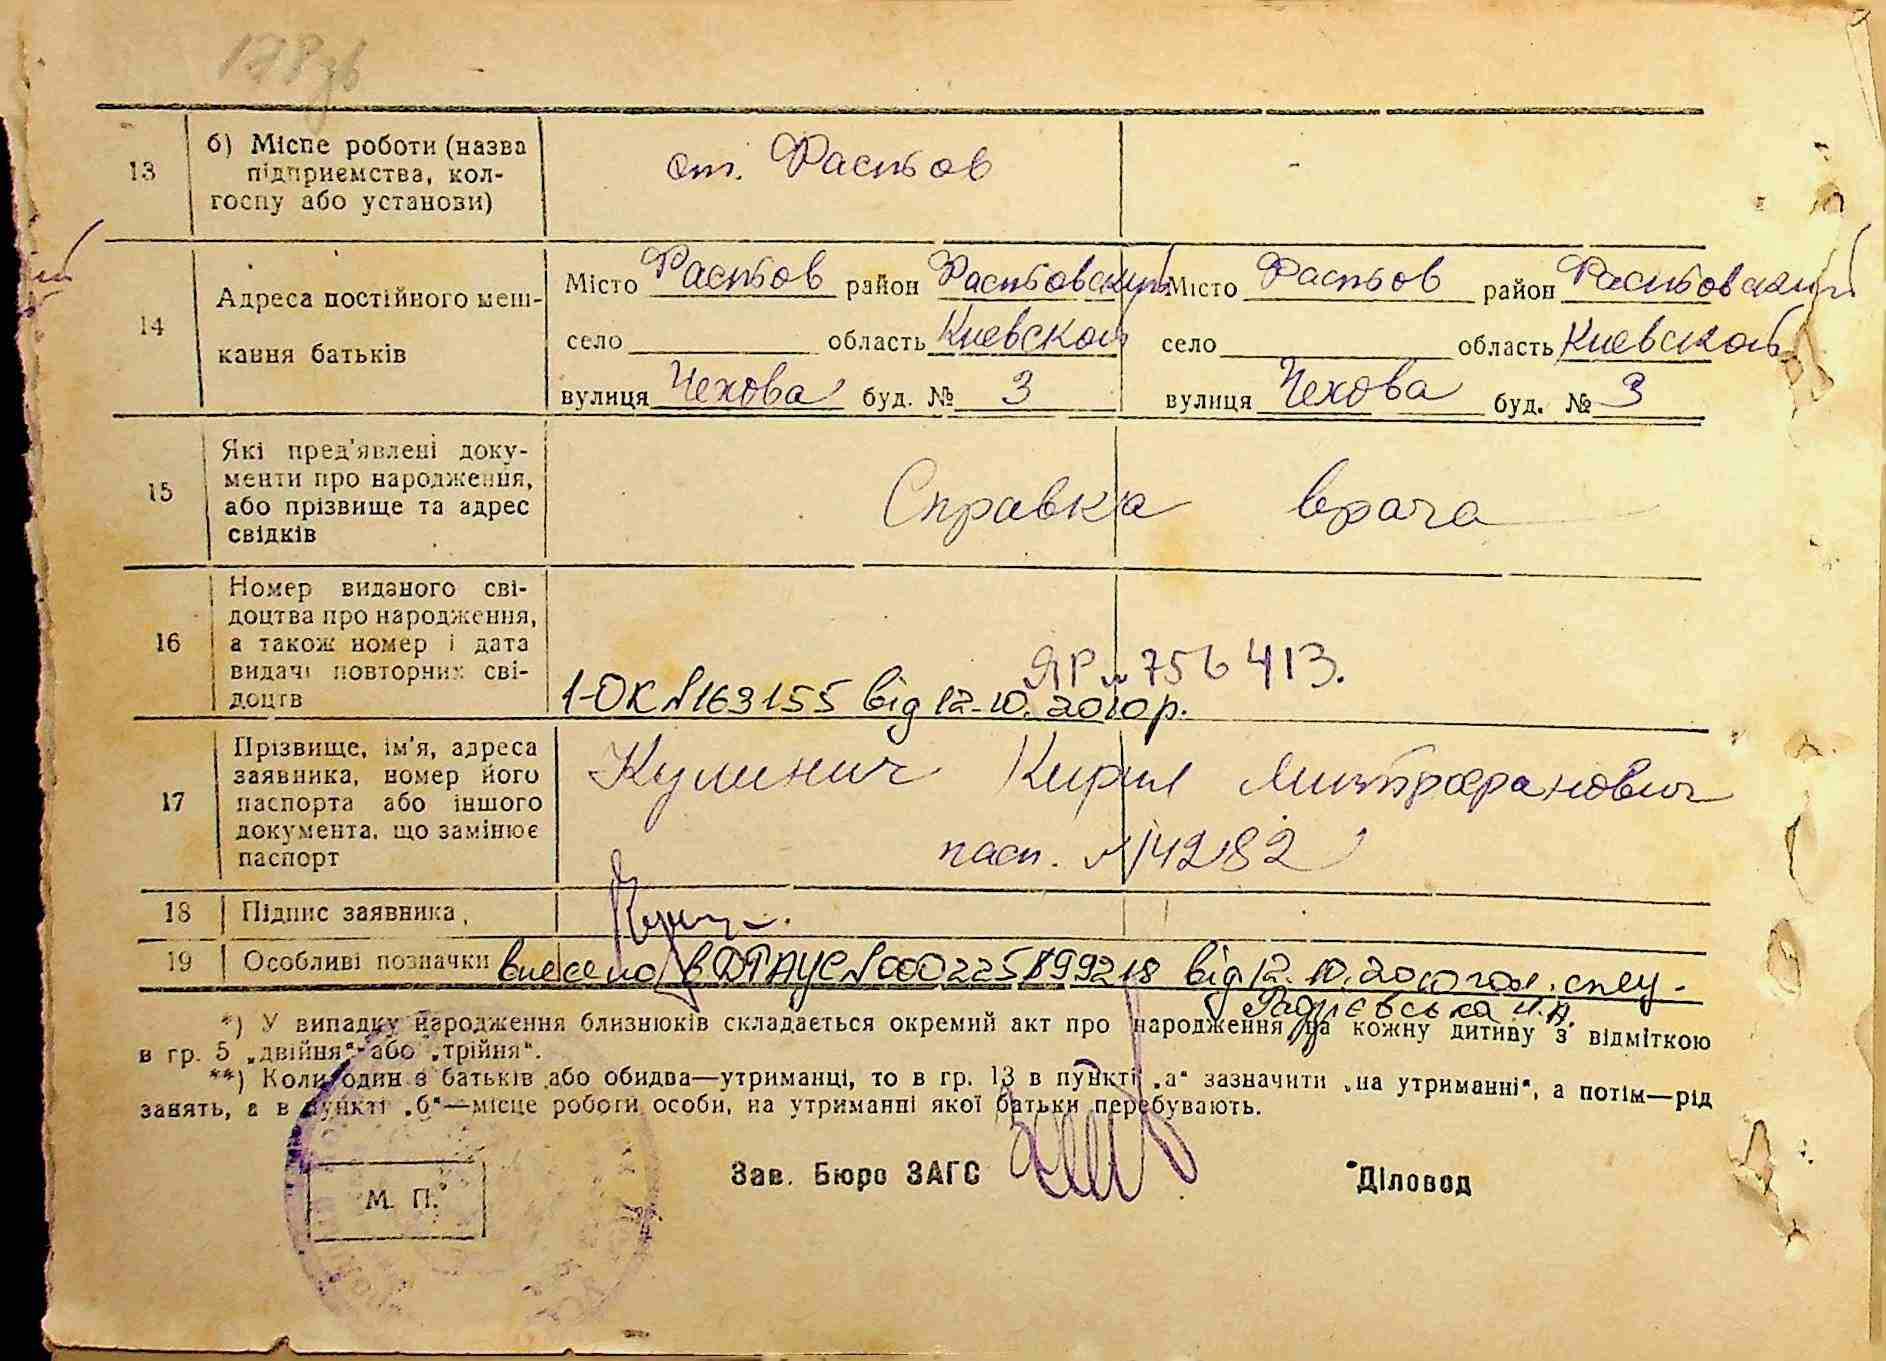 13 б) Місце роботи (назва підприємства, колгоспу або установи) ст. Фастов -
14 Адреса постійного мешкання батьків
Місто Фастов район Фастовский Місто Фастов район Фастовский
село область Киевской село область Киевской
вулиця Чехова буд. № 3 вулиця Чехова буд. № 3
15 Які пред'явлені документи про народження, або прізвище та адрес свідків
Справка врача
16 Номер виданого свідоцтва про народження, а також номер і дата видачі повторних свідоцтв
ЯР № 756413.
1-ОК №163155 від 12.10.2010р.
17 Прізвище, ім'я, адреса заявника, номер його паспорта або іншого документа, що замінює паспорт
Кулинич Кирил Митрофанович
пасп. №14282
18 Підпис заявника,
19 Особливі позначки внесено в ДРАЦС № 00022599218 від 12.10.2010 гол. спец.
*) У випадку народження близнюків складається окремий акт про народження на кожну дитину з відміткою
в гр. 5 „двійня“ або „трійня“.
**) Коли один з батьків або обидва—утриманці, то в гр. 13 в пункті „а“ зазначити „на утриманні“, а потім—рід
занять, а в пункті „б“—місце роботи особи, на утриманні якої батьки перебувають.
Зав. Бюро ЗАГС Діловод
М. П.